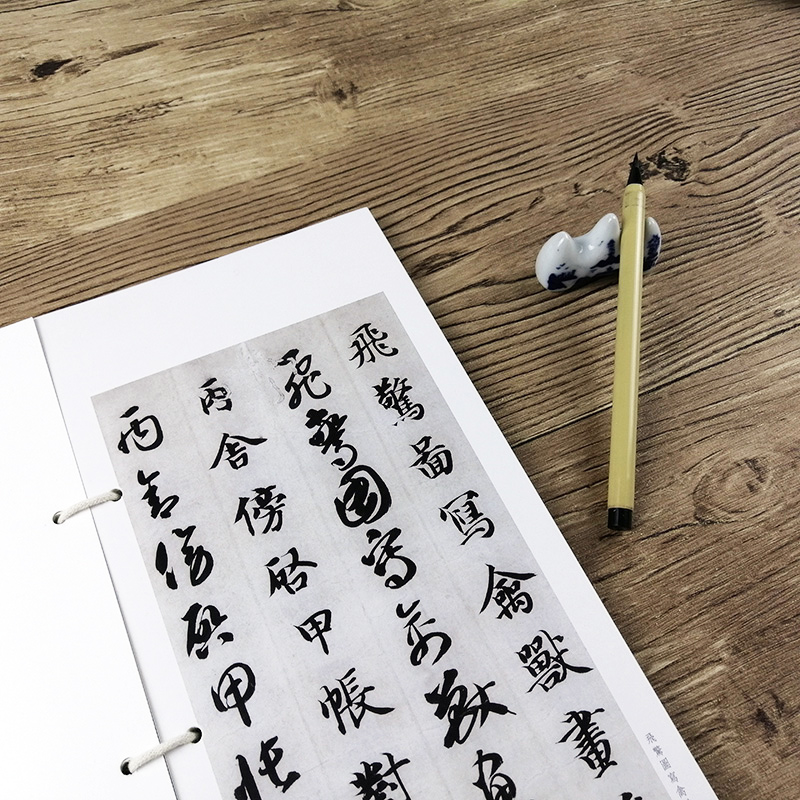 飛驚圖寫禽獸畫
飛驚圖寫禽獸畫
丙舍傍啓甲帳對
丙舍傍啓甲帳
飛驚圖寫禽